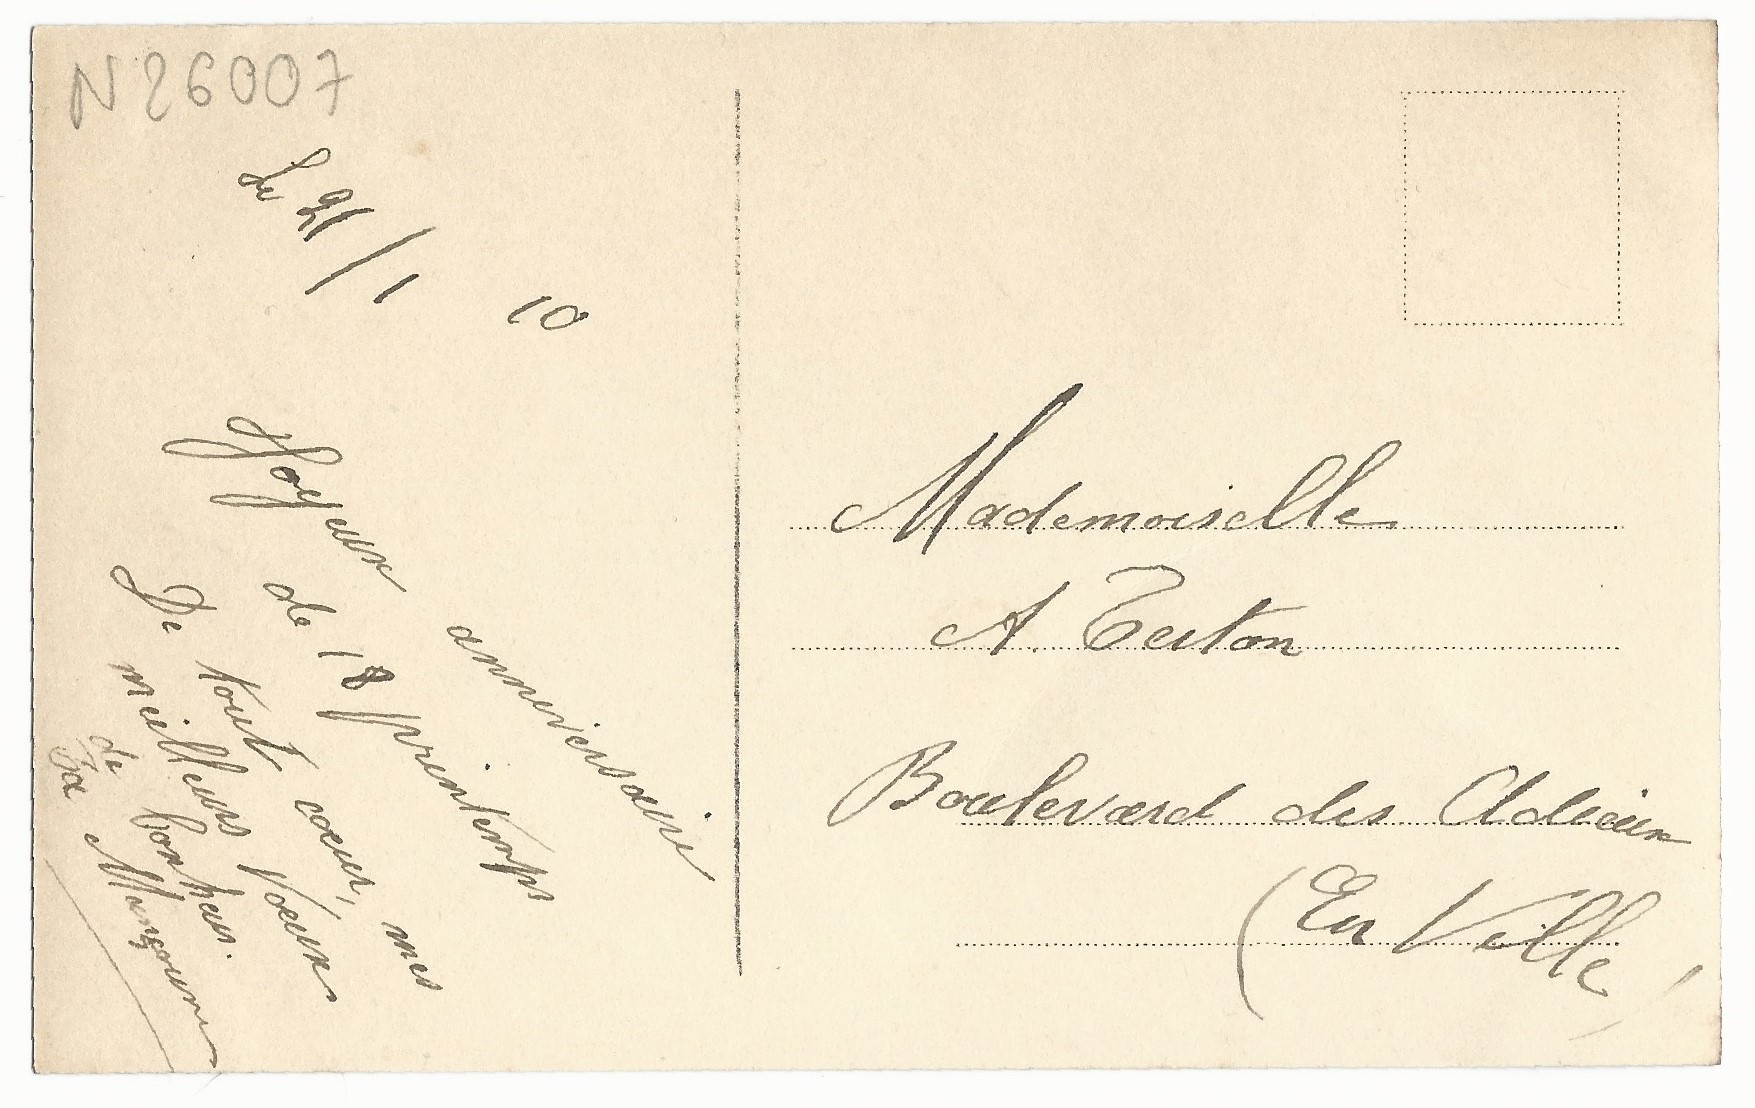 N 26007
Le 21/1 10
Joyeux anniversaire
de 18 printemps
De tout coeur, mes
meilleurs Voeux
de bonheur.
Ta
Mademoiselle
A. Terton
Boulevard des Adieux
(En Ville)